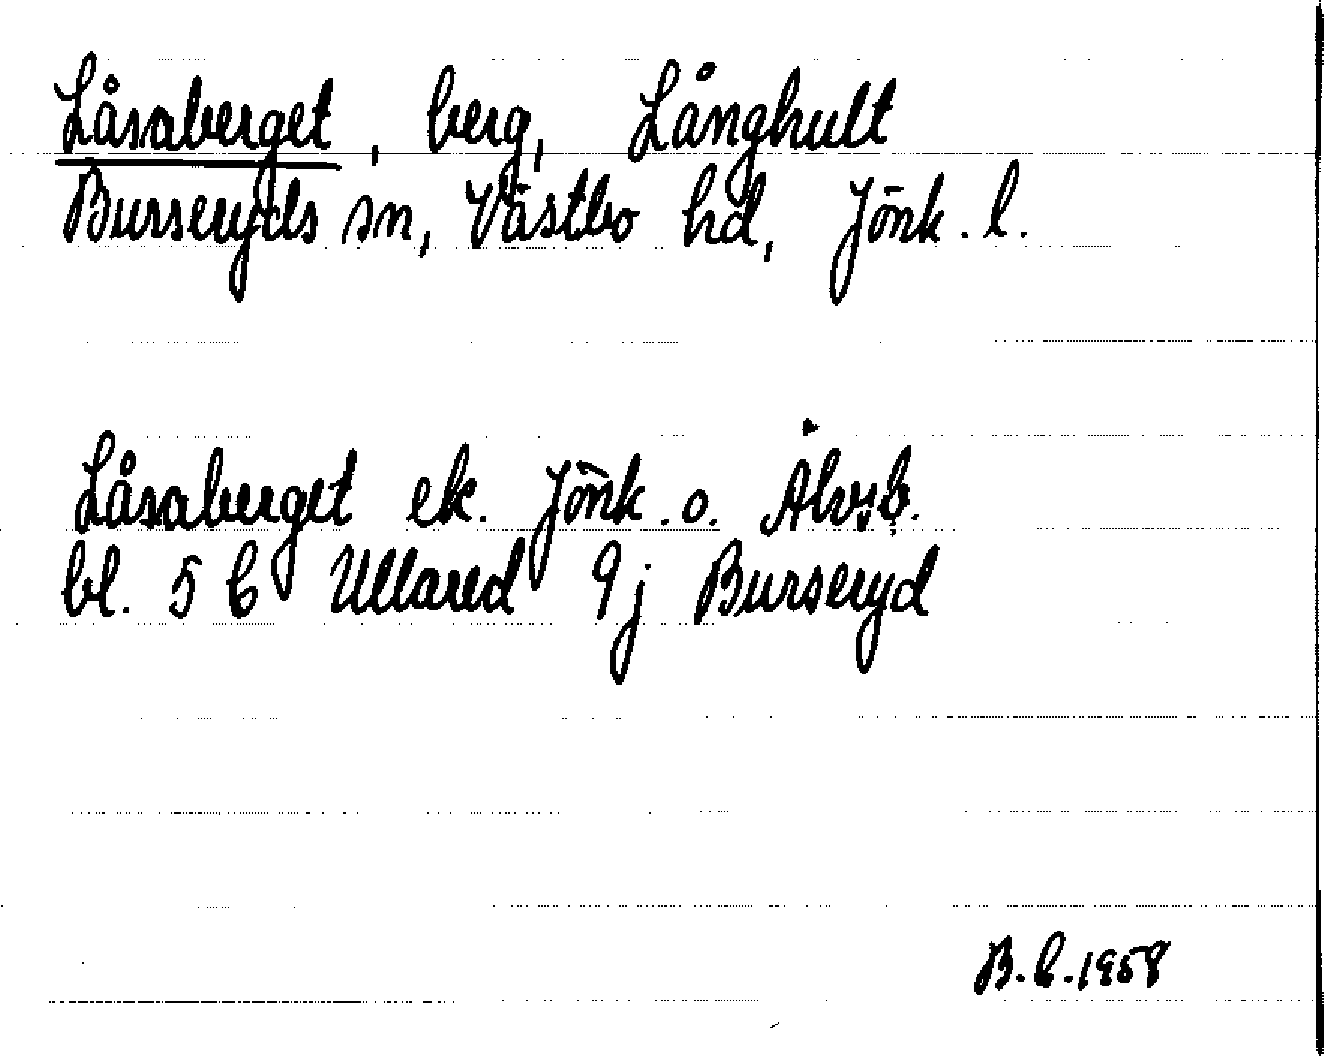 Låsaberget, berg, Långhult
Burseryds sn, Västbo hd, Jönk. l.
Låsaberget ek. Jönk. o. Älvsb.
bl. 5 C Ullared 9j Burseryd
B.C.1958